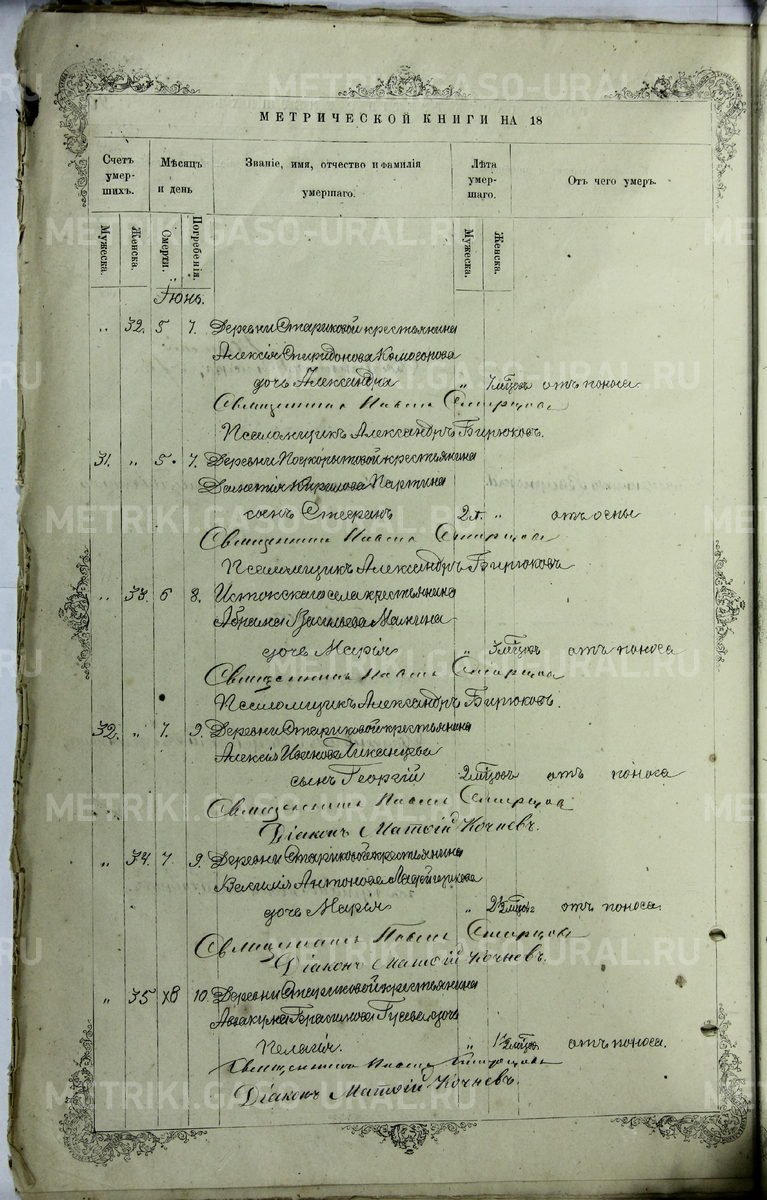 МЕТРИЧЕСКОЙ КНИГИ НА 18
Счетъ умерших. Мѣсяцъ и день Званіе, имя, отчество и фамилія умершаго. Лѣта умершаго. Отъ чего умеръ.
Мужеска. Женска. Смерти. Погребенія. Мужеска. Женска.
Іюнь.
„ 32. 5 7. Деревни Стариковой крестьянина
Алексія Спиридонова Комогорова
дочь Александра „ отъ поноса
Священникъ Павелъ Старцовъ
Псаломщикъ Александръ Бирюковъ.
31. „ 5 7. Деревни крестьянина
Кирилова Партина
сынъ Стефанъ 2 л. „ отъ оспы
Священникъ Павелъ Старцовъ
Псаломщикъ Александръ Бирюковъ
„ 33. 6 8. Истокскаго села крестьянина
Абрама Васильева Манина
дочь Марія „ 3 мцовъ отъ поноса
Священникъ Павелъ Старцовъ
Псаломщикъ Александръ Бирюковъ.
32. „ 7. 9. Деревни Стариковой крестьянина
Алексія Иванова
сынъ Георгій 2 мцовъ отъ поноса
Священникъ Павелъ Старцовъ
Діаконъ Матѳій Кочневъ.
„ 34. 7 9. Деревни Стариковой крестьянина
Василія Антонова
дочь Марія „ 2½ мцовъ отъ поноса
Священникъ Павелъ Старцовъ
Діаконъ Матѳій Кочневъ.
„ 35 8 10. Деревни Стариковой крестьянина
Аввакума Герасимова Гусева дочь
Пелагія. „ 1½ мцовъ отъ поноса.
Священникъ Павелъ Старцовъ
Діаконъ Матѳій Кочневъ.
METRIKI.GASO-URAL.RU